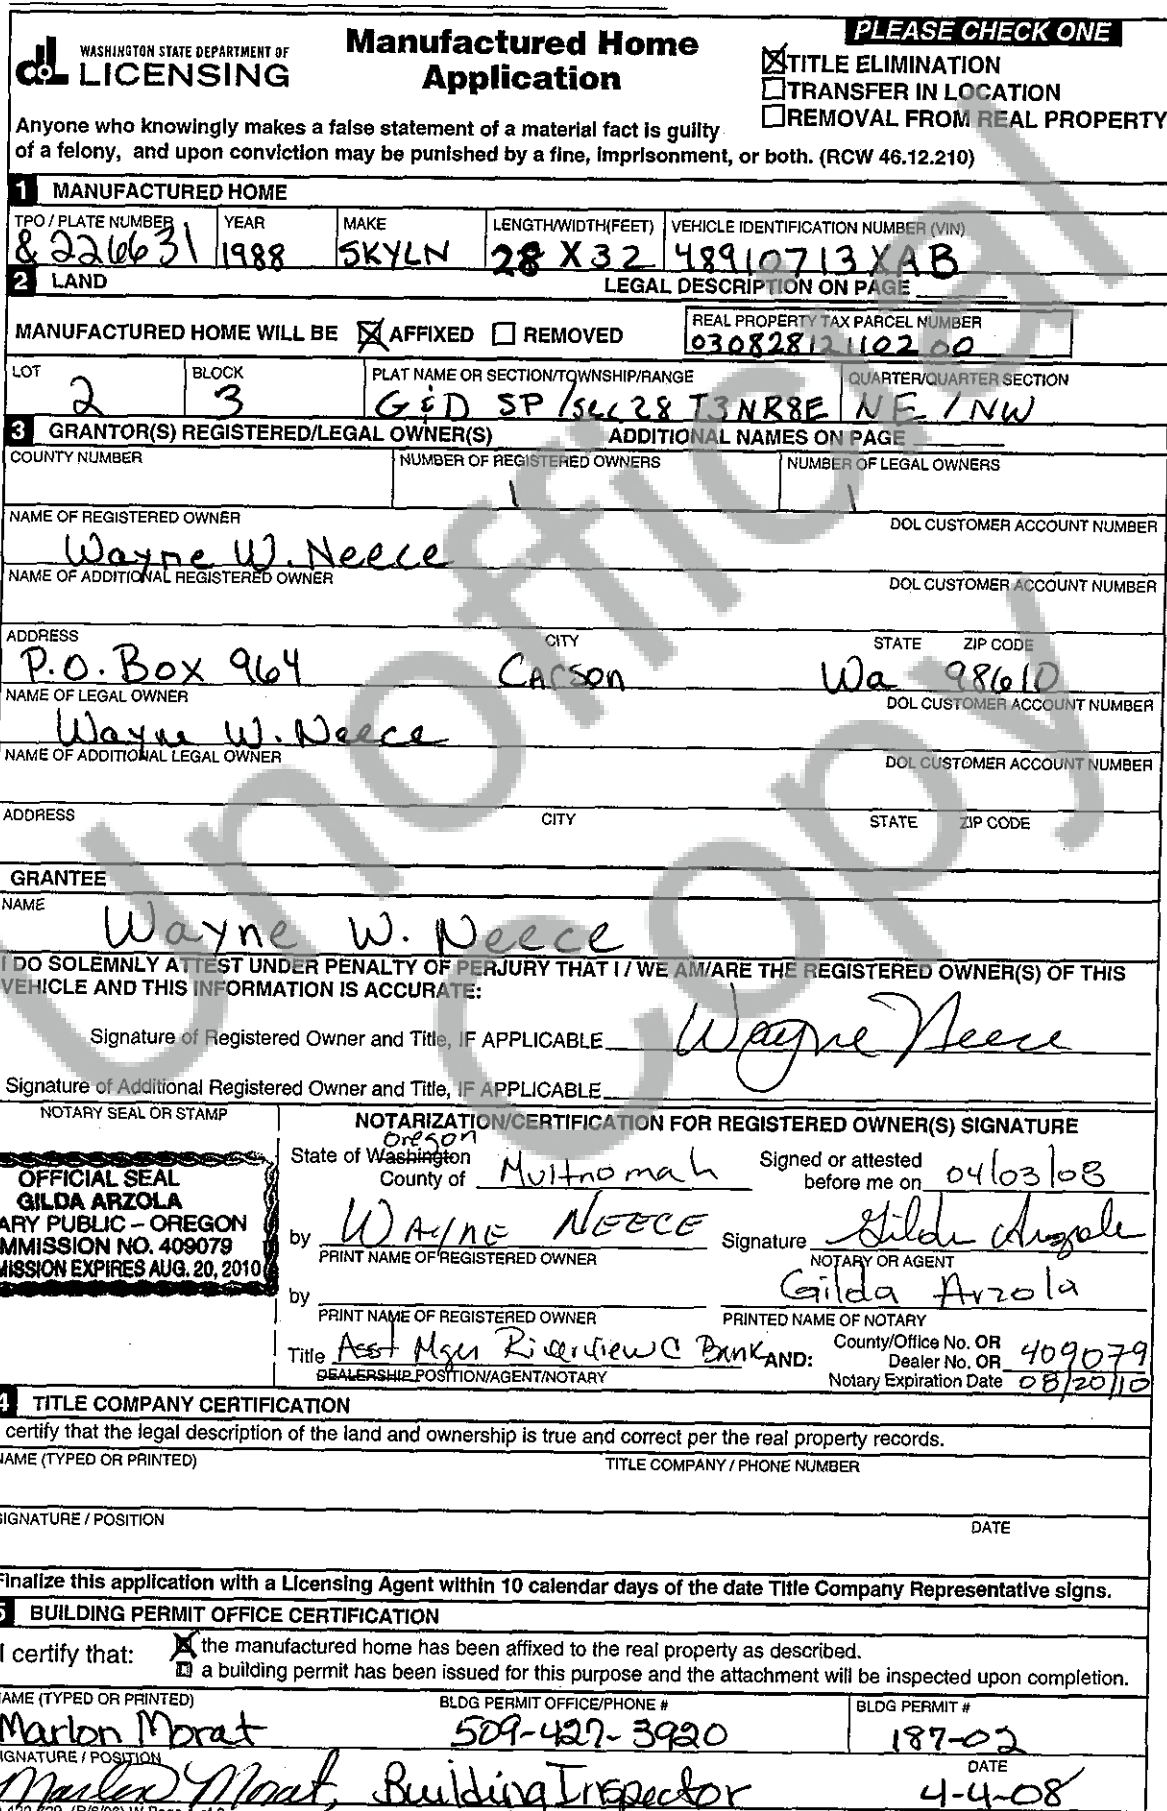 WASHINGTON STATE DEPARTMENT OF
LICENSING
Manufactured Home
Application
PLEASE CHECK ONE
TITLE ELIMINATION
TRANSFER IN LOCATION
REMOVAL FROM REAL PROPERTY
Anyone who knowingly makes a false statement of a material fact is guilty
of a felony, and upon conviction may be punished by a fine, imprisonment, or both. (RCW 46.12.210)
1 MANUFACTURED HOME
TPO / PLATE NUMBER YEAR MAKE LENGTH/WIDTH(FEET) VEHICLE IDENTIFICATION NUMBER (VIN)
&226631 1988 SKYLN 28 X 32 48910713XAB
2 LAND LEGAL DESCRIPTION ON PAGE
MANUFACTURED HOME WILL BE AFFIXED REMOVED
REAL PROPERTY TAX PARCEL NUMBER
03082812110200
LOT BLOCK PLAT NAME OR SECTION/TOWNSHIP/RANGE QUARTER/QUARTER SECTION
2 3 G&D SP/sec 28 T3NR8E NE/NW
3 GRANTOR(S) REGISTERED/LEGAL OWNER(S) ADDITIONAL NAMES ON PAGE
COUNTY NUMBER NUMBER OF REGISTERED OWNERS NUMBER OF LEGAL OWNERS
1 1
NAME OF REGISTERED OWNER DOL CUSTOMER ACCOUNT NUMBER
Wayne W. Neece
NAME OF ADDITIONAL REGISTERED OWNER DOL CUSTOMER ACCOUNT NUMBER
ADDRESS CITY STATE ZIP CODE
P.O. Box 964 Carson Wa 98610
NAME OF LEGAL OWNER DOL CUSTOMER ACCOUNT NUMBER
Wayne W. Neece
NAME OF ADDITIONAL LEGAL OWNER DOL CUSTOMER ACCOUNT NUMBER
ADDRESS CITY STATE ZIP CODE
GRANTEE
NAME
Wayne W. Neece
I DO SOLEMNLY ATTEST UNDER PENALTY OF PERJURY THAT I / WE AM/ARE THE REGISTERED OWNER(S) OF THIS
VEHICLE AND THIS INFORMATION IS ACCURATE:
Signature of Registered Owner and Title, IF APPLICABLE Wayne Neece
Signature of Additional Registered Owner and Title, IF APPLICABLE
NOTARY SEAL OR STAMP
OFFICIAL SEAL
GILDA ARZOLA
ARY PUBLIC – OREGON
MMISSION NO. 409079
MISSION EXPIRES AUG. 20, 2010
NOTARIZATION/CERTIFICATION FOR REGISTERED OWNER(S) SIGNATURE
Oregon
State of Washington
County of Multnomah
Signed or attested
before me on 04/03/08
by WAYNE NEECE Signature Gilda Arzola
PRINT NAME OF REGISTERED OWNER NOTARY OR AGENT
by Gilda Arzola
PRINT NAME OF REGISTERED OWNER PRINTED NAME OF NOTARY
Title Asst Mger Riverview C Bank AND: County/Office No. OR
Dealer No. OR 409079
DEALERSHIP POSITION/AGENT/NOTARY Notary Expiration Date 08/20/10
4 TITLE COMPANY CERTIFICATION
certify that the legal description of the land and ownership is true and correct per the real property records.
NAME (TYPED OR PRINTED) TITLE COMPANY / PHONE NUMBER
SIGNATURE / POSITION DATE
Finalize this application with a Licensing Agent within 10 calendar days of the date Title Company Representative signs.
5 BUILDING PERMIT OFFICE CERTIFICATION
I certify that: the manufactured home has been affixed to the real property as described.
a building permit has been issued for this purpose and the attachment will be inspected upon completion.
NAME (TYPED OR PRINTED) BLDG PERMIT OFFICE/PHONE # BLDG PERMIT #
Marlon Morat 509-427-3920 187-02
SIGNATURE / POSITION DATE
Marlon Morat, Building Inspector 4-4-08
Unofficial
Copy